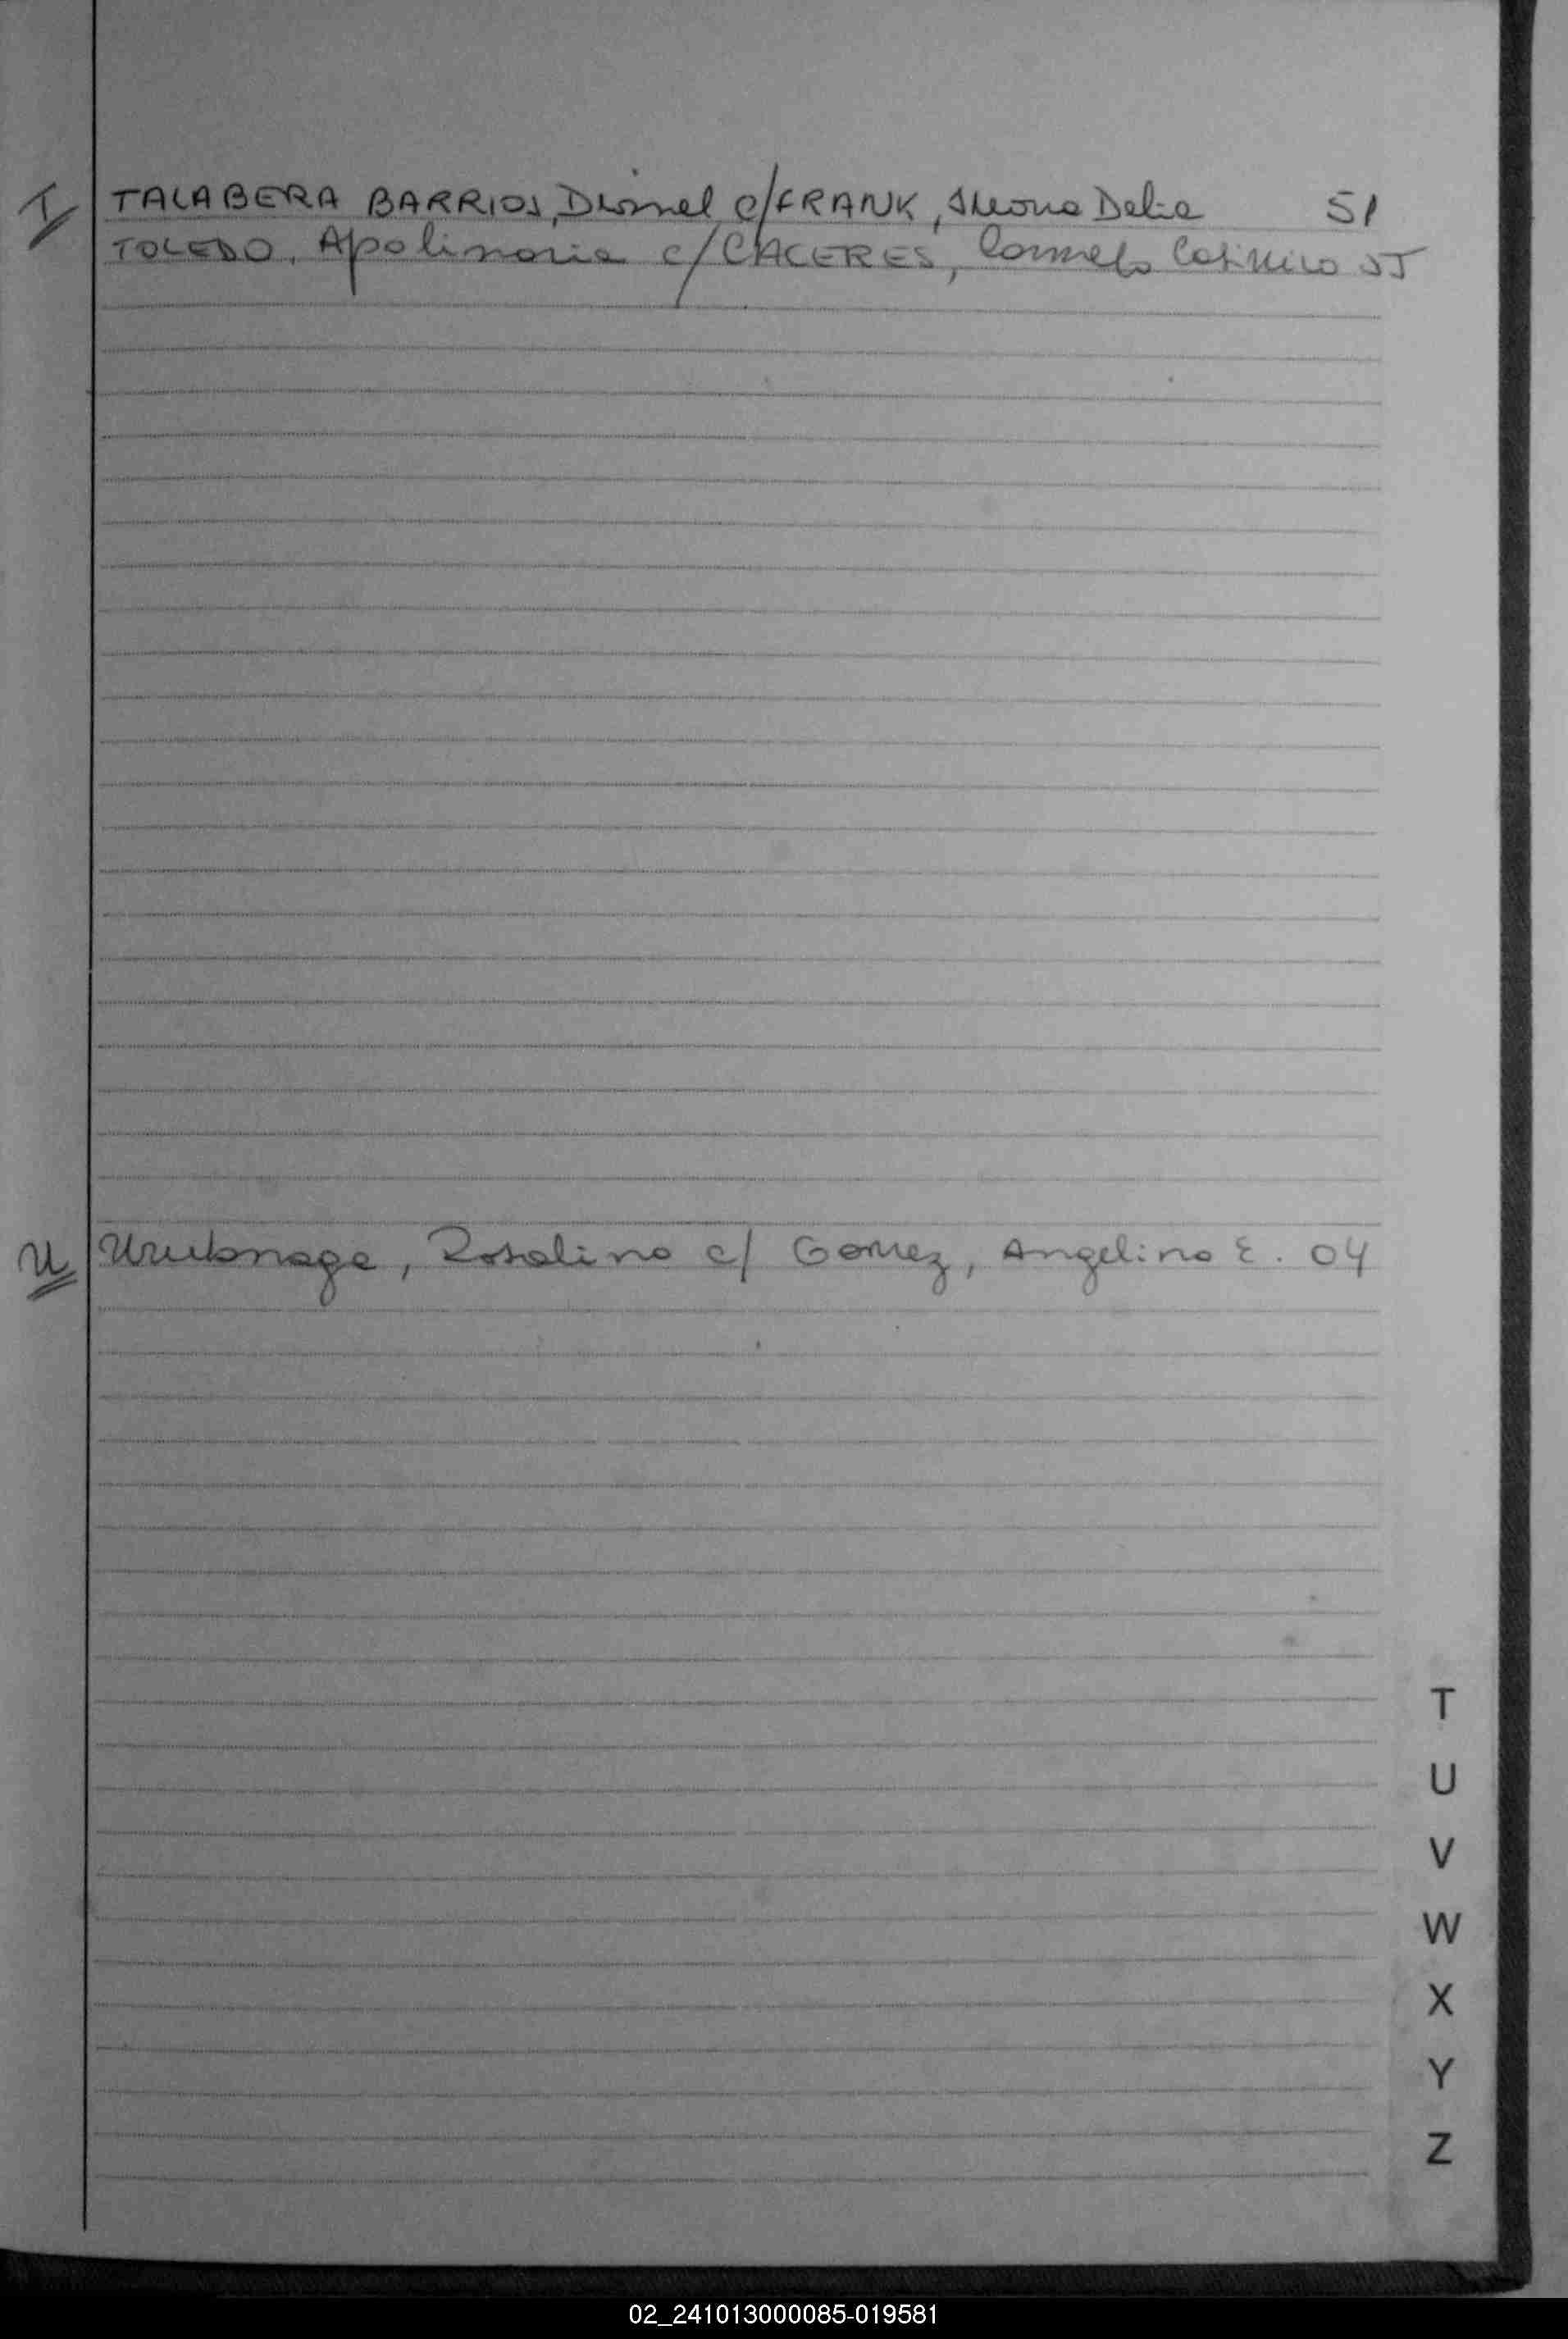 T
TALABERA BARRIOS, Dionel c/FRANK, Delia 51
TOLEDO, Apolinaria c/CACERES, Casimiro 55
U
, Rosalino c/ Gomez, Angelino E. 04
T
U
V
W
X
Y
Z
02_241013000085-019581